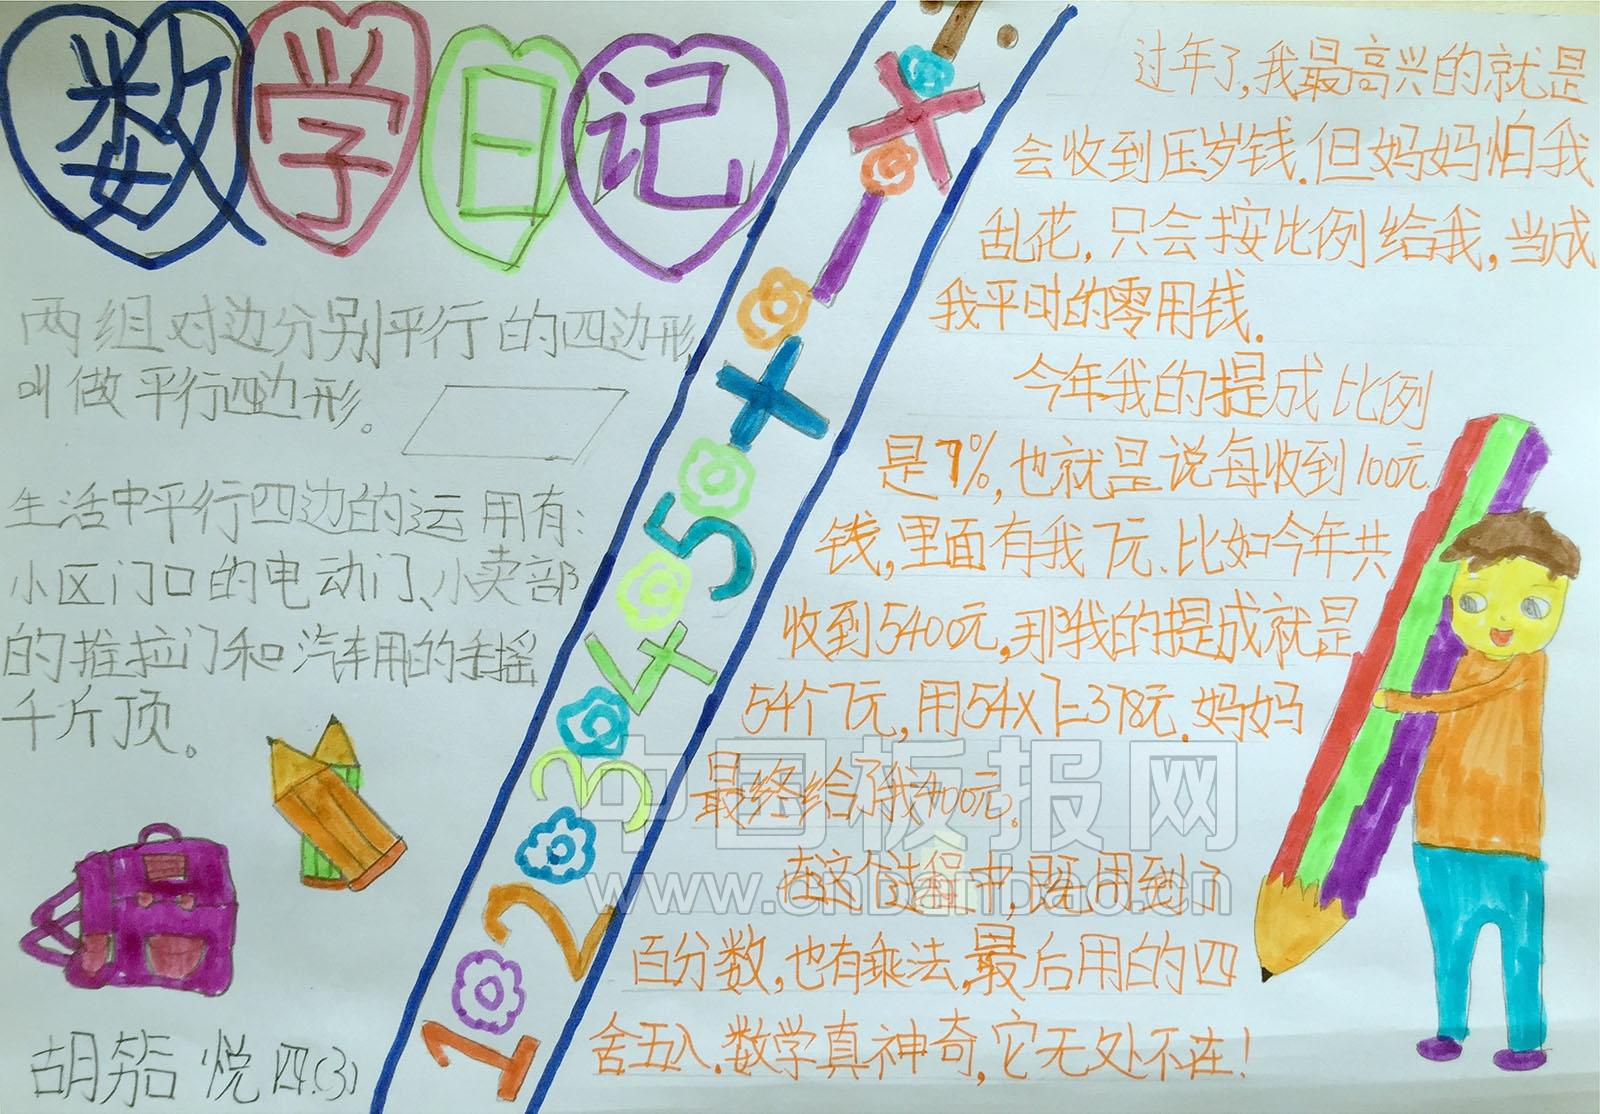 数学日记
两组对边分别平行的四边形
叫做平行四边形。
生活中平行四边的运用有：
小区门口的电动门、小卖部
的推拉门和汽车用的手摇
千斤顶。
胡 悦 四(3)
1 2 3 4 5 + - ×
过年了,我最高兴的就是
会收到压岁钱.但妈妈怕我
乱花,只会按比例给我,当成
我平时的零用钱.
今年我的提成比例
是7%,也就是说每收到100元
钱,里面有我7元.比如今年共
收到5400元,那我的提成就是
54个7元,用54×7=378元.妈妈
最终给了我400元。
在这个过程中,既用到了
百分数,也有乘法,最后用的四
舍五入.数学真神奇,它无处不在!
中国板报网
www.cnbanbao.cn